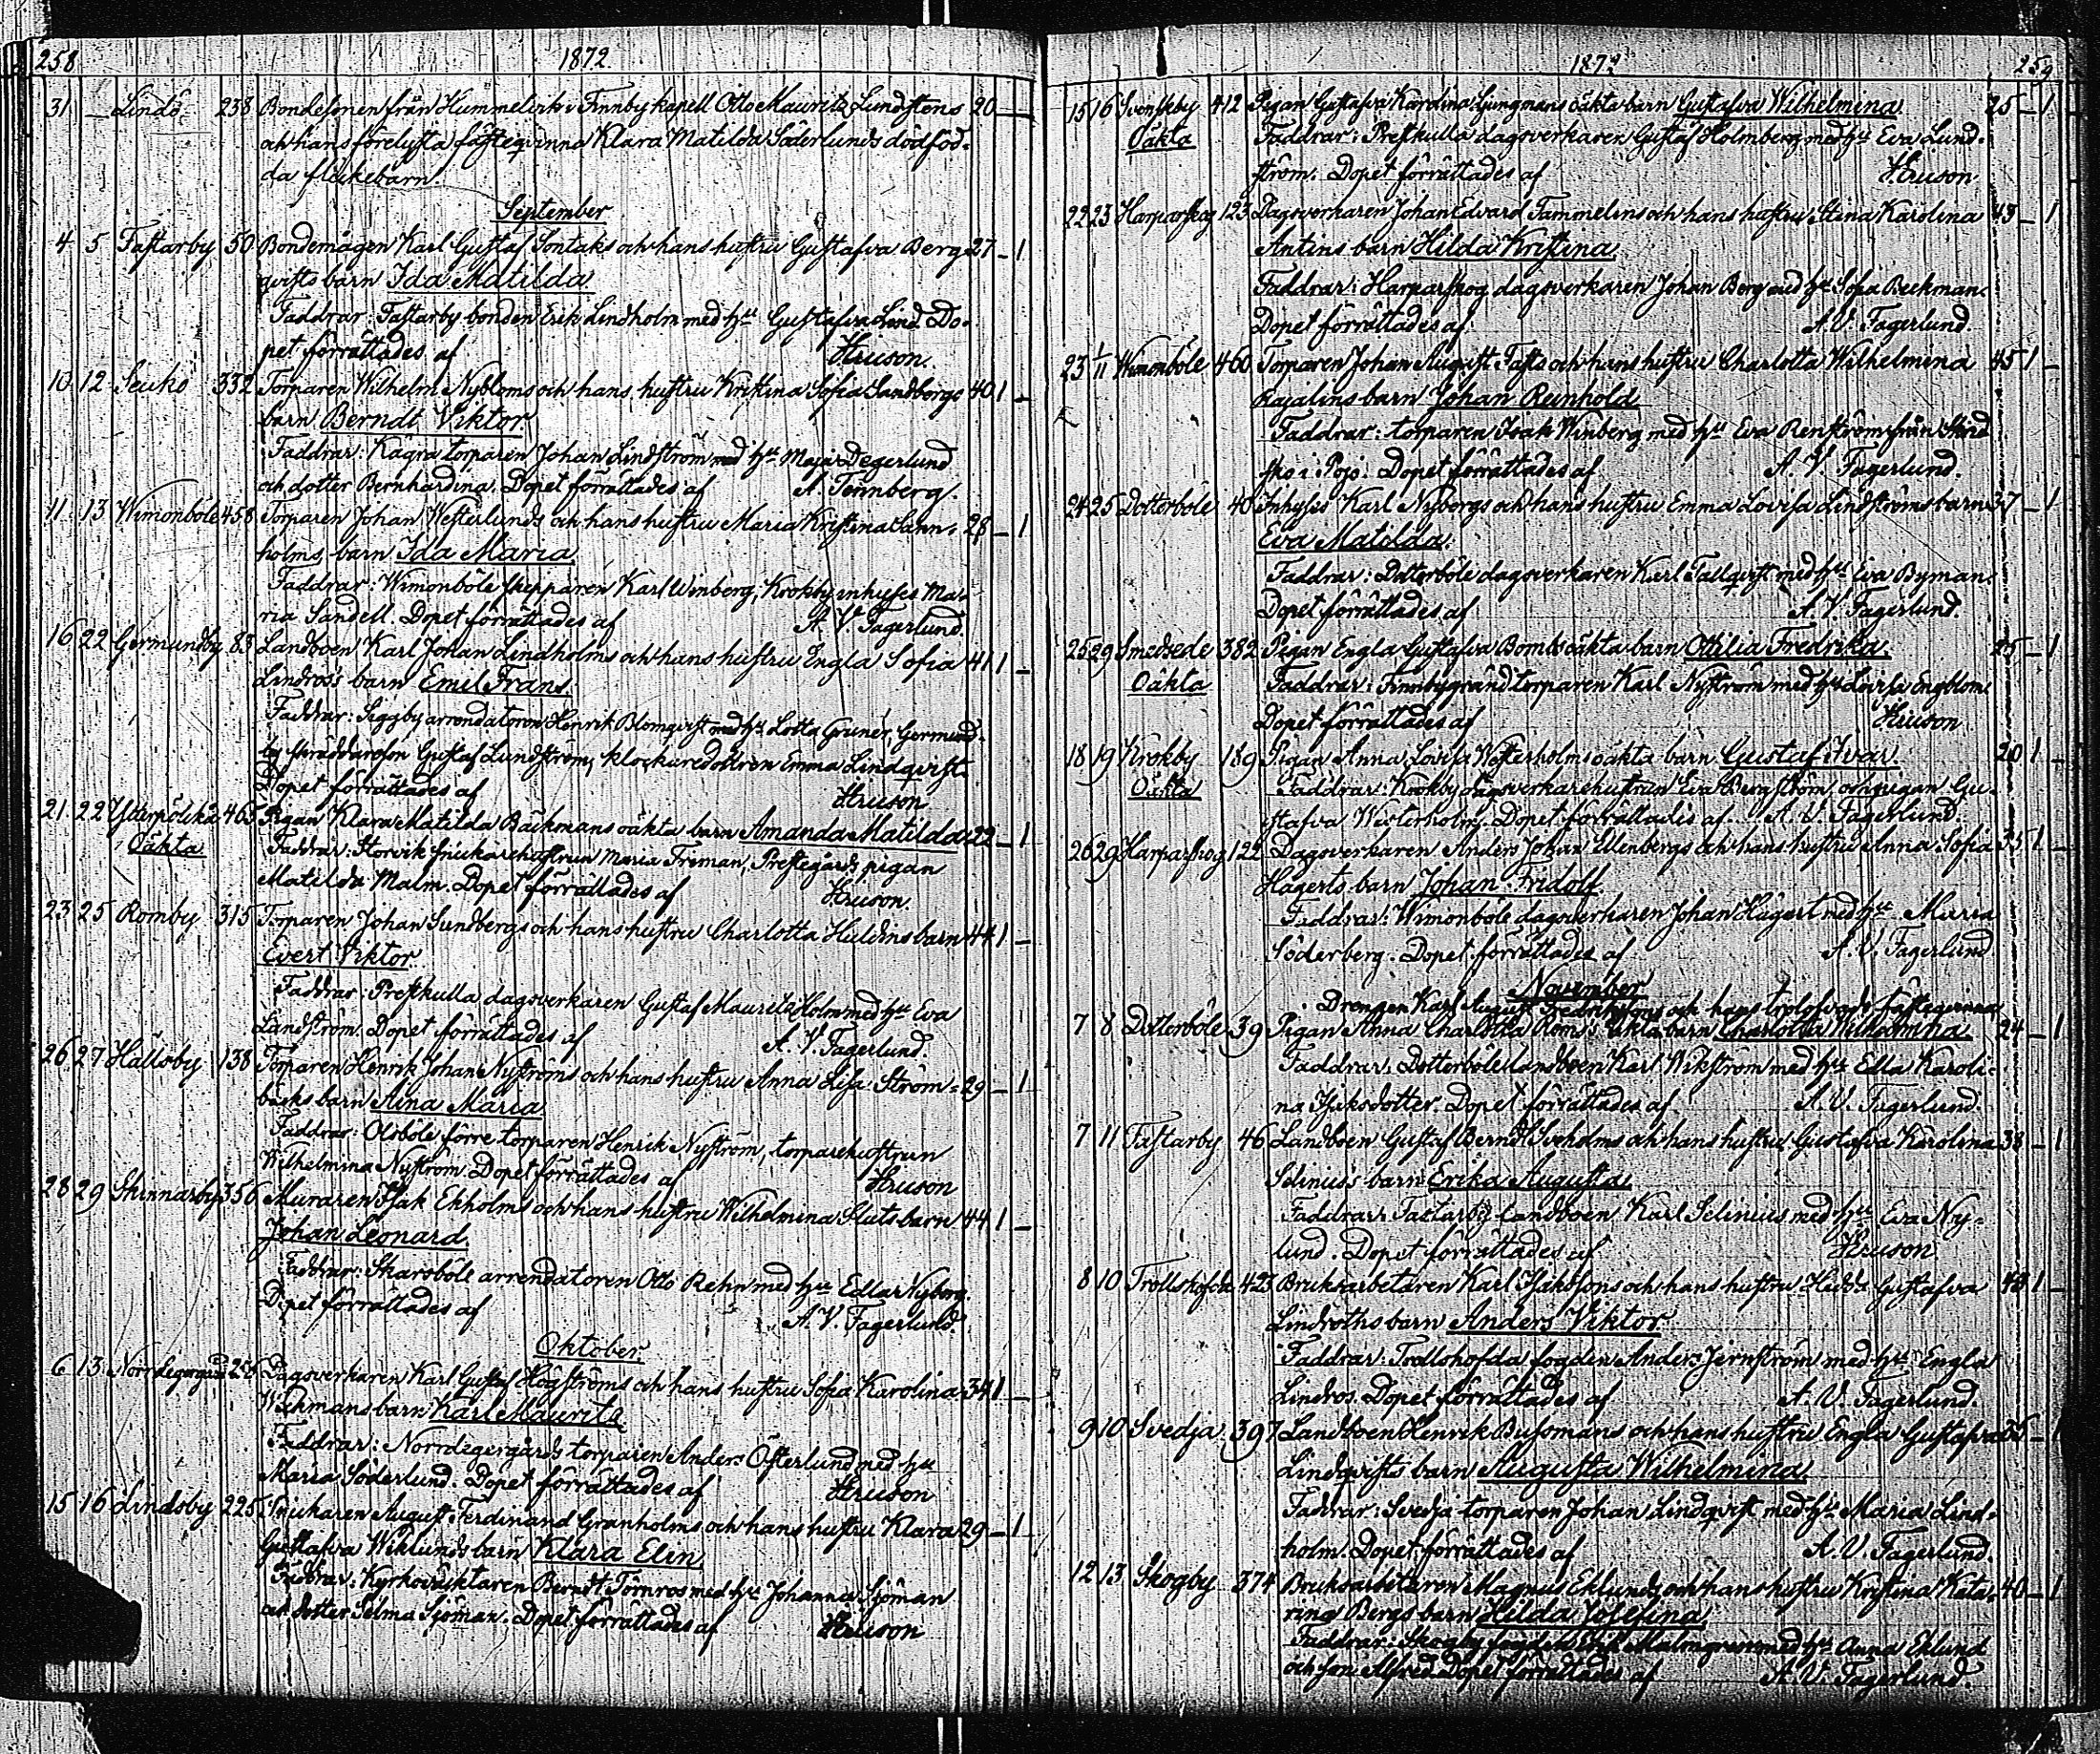 258 1872
31 — Lindö 238 Bondesonen från Hummelvik i Finnby kapell Otto Mauritz Lundstens 20 —
och hans förelyfta fästeqvinna Klara Matilda Söderlunds dödföd-
da flickebarn.
September
4 5 Fastarby 50 Bondemågen Karl Gustaf Sontaks och hans hustru Gustafva Berg- 27 — 1
qvists barn Ida Matilda.
Faddrar: Fastarby bonden Erik Lindholm med hu Gustafva Lind. Do-
pet förrättades af Hruson.
10 12 Seuko 332 Torparen Wilhelm Nybloms och hans hustru Kristina Sofia Sandbergs 40 1 —
barn Berndt Viktor.
Faddrar: Kagra torparen Johan Lindström med hu Maja Degerlund
och dotter Bernhardina. Dopet förrättades af A. Tennberg.
11 13 Wimonböle 458 Torparen Johan Westerlunds och hans hustru Maria Kristina Sann- 28 — 1
holms barn Ida Maria.
Faddrar: Wimonböle skepparen Karl Winberg, Krokby inhyses Ma-
ria Sandell. Dopet förrättades af A. V. Fagerlund.
16 22 Germundby 83 Landboen Karl Johan Lindholms och hans hustru Engla Sofia 41 1 —
Lindros's barn Emil Frans.
Faddrar: Siggby arrendatoren Henrik Blomqvist med hu Lotta Grunér, Germund-
by skräddareson Gustaf Lundström, klockaredottren Emma Lindqvist.
Dopet förrättades af Hruson
21 22 Ytterpölikä 465 Pigan Klara Matilda Bäckmans oäkta barn Amanda Matilda 22 — 1
Oäkta Faddrar: Storvik snickarehustrun Maria Friman, Prestegårds pigan
Matilda Malm. Dopet förrättades af Hruson.
23 25 Romby 315 Torparen Johan Sundbergs och hans hustru Charlotta Huldins barn 44 1 —
Evert Viktor.
Faddrar: Prestkulla dagsverkaren Gustaf Mauritz Holm med hu Eva
Landström. Dopet förrättades af A. V. Fagerlund.
26 27 Hällsby 138 Torparen Henrik Johan Nyströms och hans hustru Anna Lisa Ström- 29 — 1
bäcks barn Aina Maria
Faddrar: Olsböle förre torparen Henrik Nyström, torparehustrun
Wilhelmina Nyström. Dopet förrättades af Hruson
28 29 Skinnarby 356 Muraren Isak Ekholms och hans hustru Wilhelmina Sluts barn 44 1 —
Johan Leonard.
Faddrar: Skarsböle arrendatoren Otto Rehn med hu Edla Nyberg.
Dopet förrättades af A. V. Fagerlund.
Oktober.
6 13 Norrdegergård 256 Dagsverkaren Karl Gustaf Högströms och hans hustru Sofia Karolina 34 1 —
Wickmans barn Karl Mauritz
Faddrar: Norrdegergårds torparen Anders Österlund med hu
Maria Söderlund. Dopet förrättades af Hruson
15 16 Lindsby 225 Snickaren August Ferdinand Granholms och hans hustru Klara 29 — 1
Gustafva Wiklunds barn Klara Elin.
Faddrar: Kyrkoväktaren Berndt Törnros med hu Johanna Sjöman
och dotter Selma Sjöman. Dopet förrättades af Hruson
1872 259
15 16 Svenskby 412 Pigan Gustafva Karolina Ljungmans oäkta barn Gustafva Wilhelmina 25 — 1
Oäkta Faddrar: Prestkulla dagsverkaren Gustaf Holmberg med hu Eva Lund-
ström. Dopet förrättades af Hruson
22 23 Harparskog 123 Dagsverkaren Johan Edvard Tammelins och hans hustru Stina Karolina 43 — 1
Antins barn Hilda Kristina.
Faddrar: Harparskog dagsverkaren Johan Berg med hu Sofia Beckman.
Dopet förrättades af A. V. Fagerlund.
23 1/11 Wimonböle 460 Torparen Johan August Fasts och hans hustru Charlotta Wilhelmina 45 1 —
Rajalins barn Johan Reinhold.
Faddrar: torparen Isak Winberg med hu Eva Renström från Skrid
sko i Pojo. Dopet förrättades af A. V. Fagerlund.
24 25 Dotterböle 40 Inhyses Karl Nybergs och hans hustru Emma Lovisa Lindströms barn 37 — 1
Eva Matilda.
Faddrar: Dotterböle dagsverkaren Karl Tallqvist med hu Eva Byman.
Dopet förrättades af A. V. Fagerlund.
25 29 Smedsede 382 Pigan Engla Gustafva Bombs oäkta barn Ottilia Fredrika. 25 — 1
Oäkta Faddrar: Finnbygränd torparen Karl Nyström med hu Lovisa Engblom.
Dopet förrättades af Hruson
18 19 Krokby 189 Pigan Anna Lovisa Westerholms oäkta barn Gustaf Ivar. 20 1 —
Oäkta Faddrar: Krokby dagsverkarehustrun Eva Bergström och pigan Gu-
stafva Westerholm. Dopet förrättades af A. V. Fagerlund.
26 29 Harparskog 122 Dagsverkaren Anders Johan Ellenbergs och hans hustru Anna Sofia 35 1 —
Hagerts barn Johan Fridolf
Faddrar: Wimonböle dagsverkaren Johan Hagert med hu Maria
Söderberg. Dopet förrättades af A. V. Fagerlund
November
Drengen Karl August Fredrikssons och hans trolofvade fästeqvinna
7 8 Dotterböle 39 Pigan Anna Charlotta Roms's äkta barn Charlotta Wilhelmina 24 — 1
Faddrar: Dotterböle landboen Karl Wikström med hu Edla Karoli-
na Isaksdotter. Dopet förrättades af A. V. Fagerlund.
7 11 Fastarby 46 Landboen Gustaf Berndt Sveholms och hans hustru Gustafva Karolina 38 — 1
Selinius's barn Erika Augusta.
Faddrar: Fastarby landboen Karl Selinius med hu Eva Ny-
lund. Dopet förrättades af Hruson
8 10 Trollshofda 423 Bruksarbetaren Karl Isakssons och hans hustru Hedda Gustafva 43 1 —
Lindroths barn Anders Viktor
Faddrar: Trollshofda fogden Anders Jernström med hu Engla
Lindros. Dopet förrättades af A. V. Fagerlund.
9 10 Svedja 397 Landboen Henrik Busomans och hans hustru Engla Gustafva 36 — 1
Lindqvists barn Augusta Wilhelmina.
Faddrar: Svedja torparen Johan Lindqvist med hu Maria Lind-
holm. Dopet förrättades af A. V. Fagerlund.
12 13 Skogby 374 Bruksarbetaren Magnus Eklunds och hans hustru Kristina Kata- 40 — 1
rina Bergs barn Hilda Josefina.
Faddrar: Skogby fogden Erik Malmgren med hu Anna Eklund
och son Alfred. Dopet förrättades af A. V. Fagerlund.